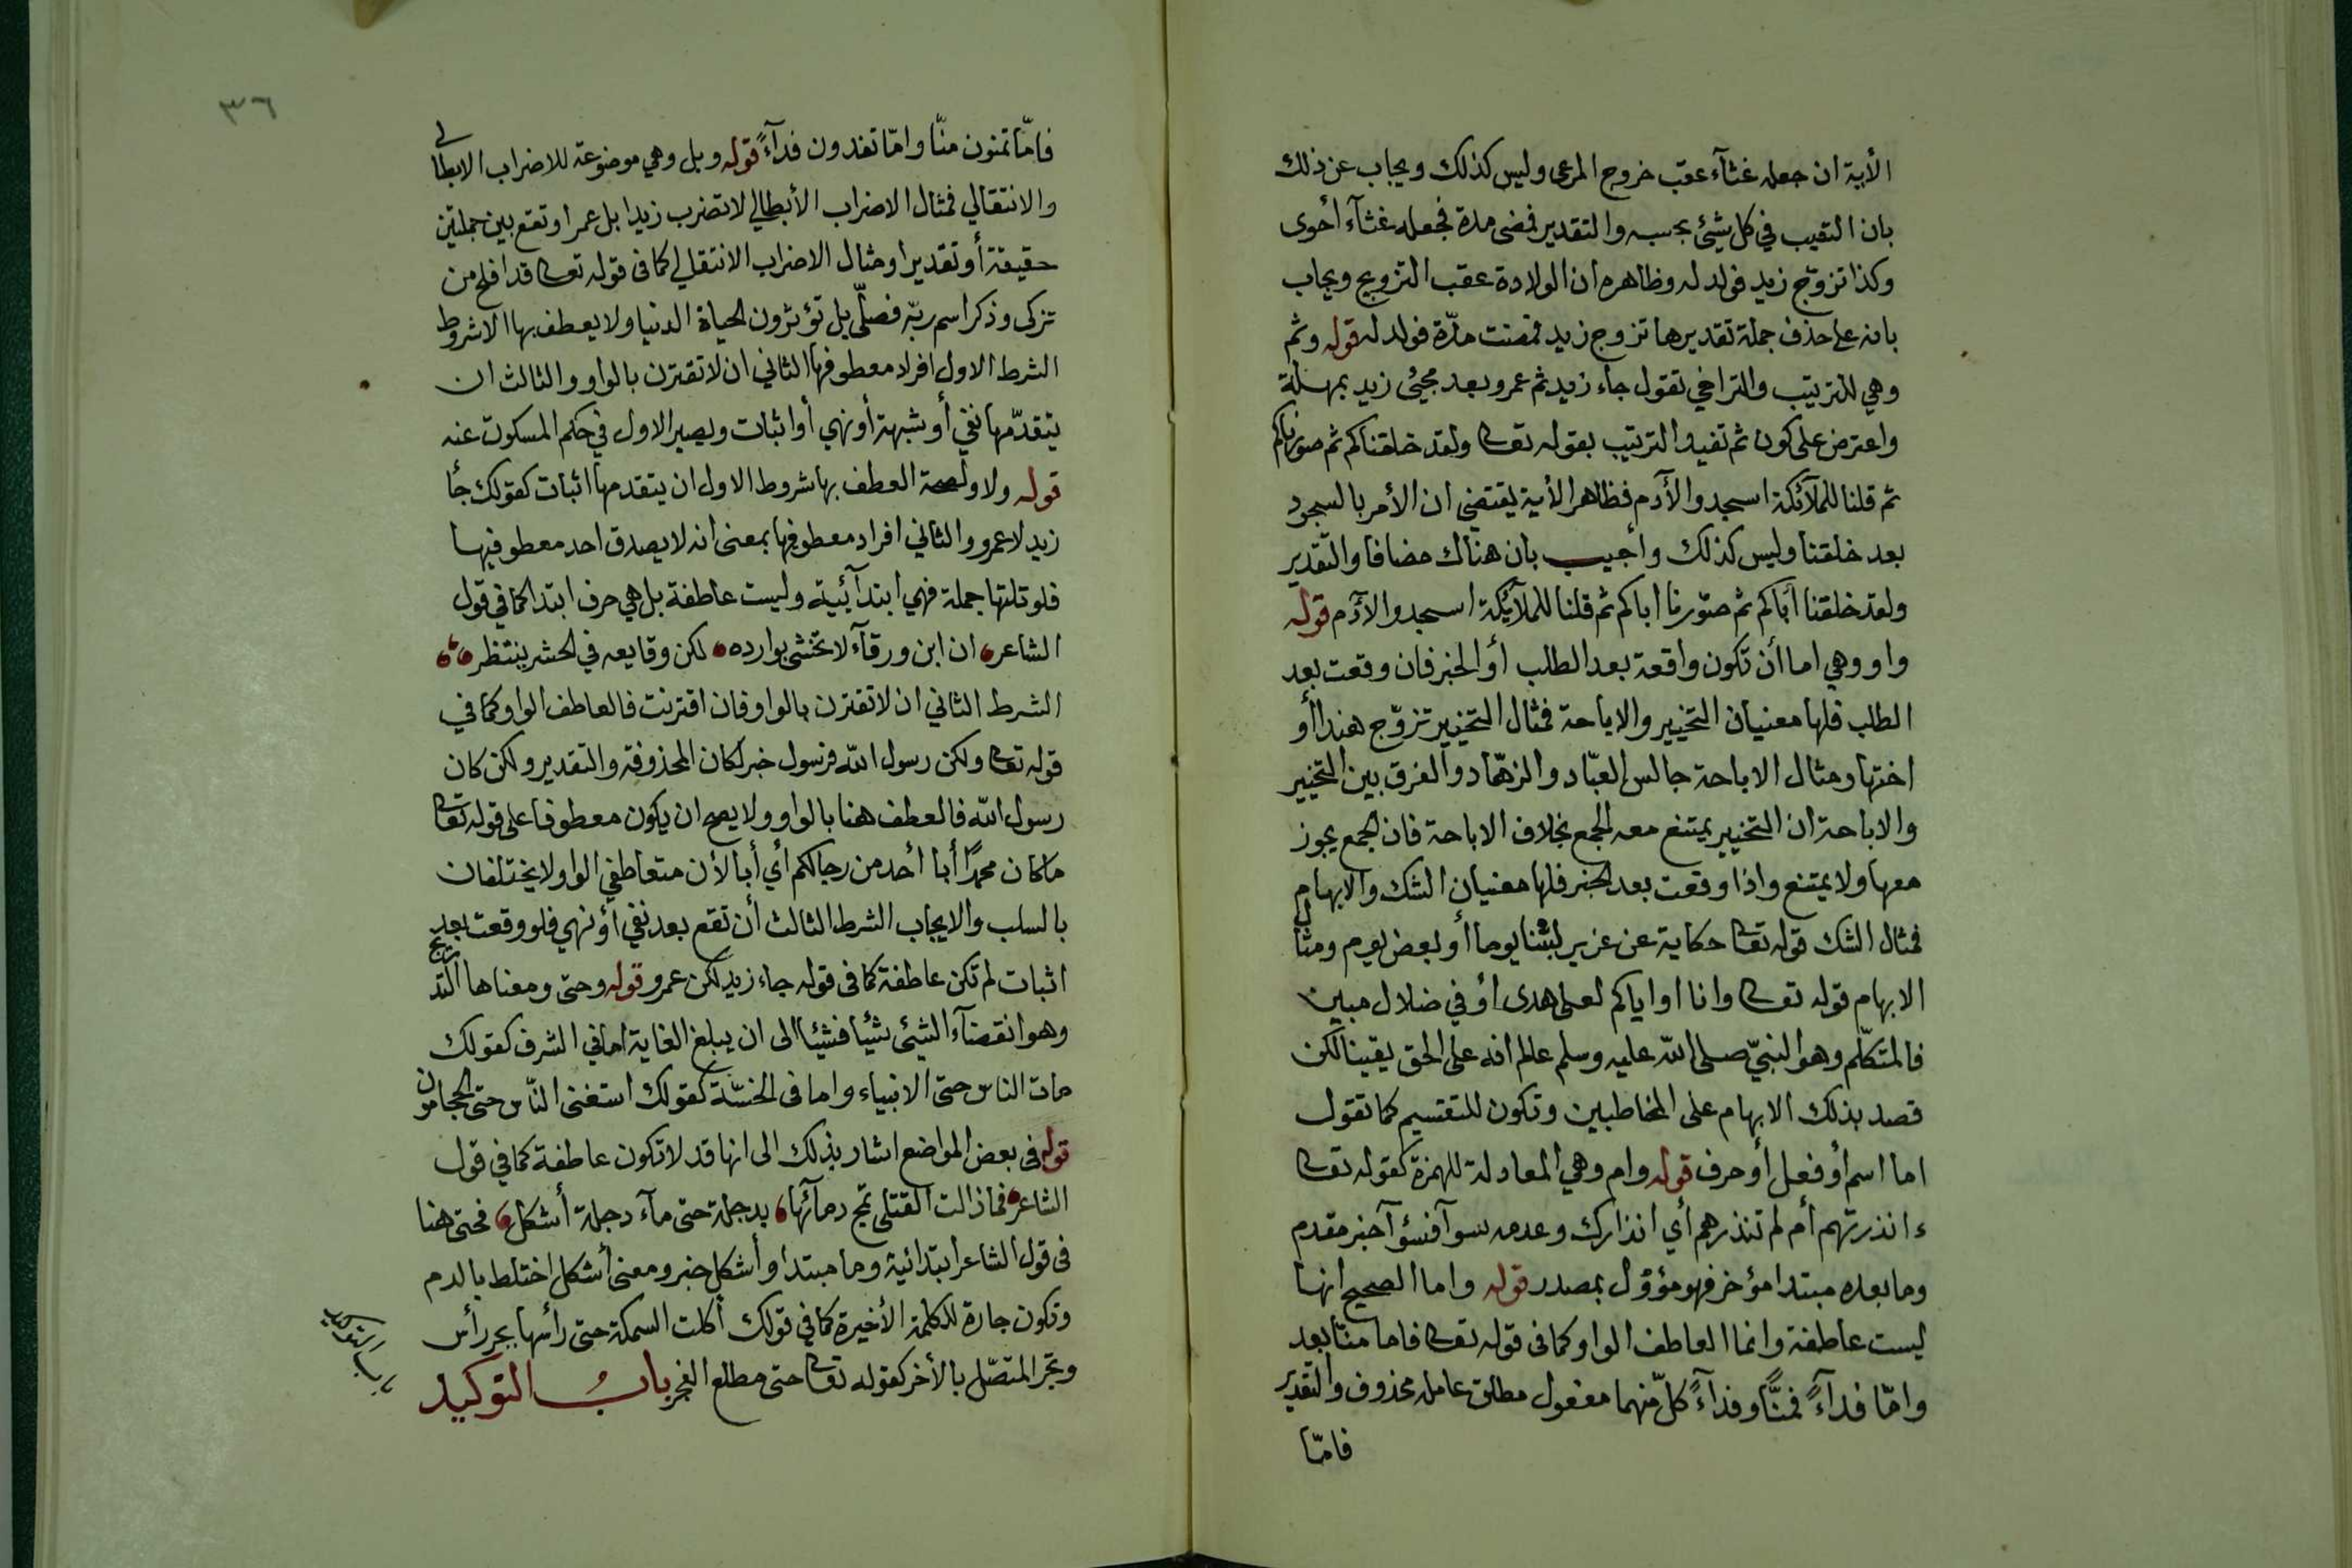 الأية ان جعله غثآء عقب خروج المرعى وليس كذلك ويجاب عن ذلك
بان التقيب في كل شيئ بحسبه والتقدير فمضى مدة فجعله غثآء أحوى
وكذا تزوّج زيد فولد له وظاهره ان الولادة عقب التزويج ويجاب
بانه على حذف جملة تقديرها تزوج زيد فمضت مدّة فولد له قوله وثم
وهي للترتيب والتراخي تقول جاء زيد ثم عمرو بعد مجيئ زيد بمهلة
واعترض على كون ثم تفيد الترتيب بقوله تعا ولقد خلقناكم ثم صورناكم
ثم قلنا للملآئكة اسجدوا لأدم فظاهر الأية يقتضي ان الأمر بالسجود
بعد خلقنا وليس كذلك وأجيب بان هناك مضافا والتقدير
ولقد خلقنا أباكم ثم صوّرنا اباكم ثم قلنا للملآئكة اسجدوا لأدم قوله
واو وهي اما أن تكون واقعة بعد الطلب أو الخبر فان وقعت بعد
الطلب فلها معنيان التخيير والاباحة فمثال التخيير تزوّج هندا أو
اختها ومثال الاباحة جالس العبّاد والزهّاد والفرق بين التخيير
والاباحة ان التخيير يمتنع معه الجمع بخلاف الاباحة فان الجمع يجوز
معها ولا يمتنع واذا وقعت بعد الخبر فلها معنيان الشك والابهام
فمثال الشك قوله تعا حكاية عن عزير لبثنا يوما أو بعض يوم ومثال
الابهام قوله تعا وانا او اياكم لعلى هدى أو في ضلال مبين
فالمتكلّم وهو النبيّ صلى الله عليه وسلم عالم انه على الحق يقينا لكن
قصد بذلك الابهام على المخاطبين وتكون للتقسيم كما تقول
اما اسم أو فعل أو حرف قوله وام وهي المعادلة للهمزة كقوله تعا
ءانذرتهم أم لم تنذرهم أي انذارك وعدمه سوآ فسؤآ خبر مقدم
وما بعده مبتدا مؤخر فهو مؤوّل بمصدر قوله واما الصحيح انها
ليست عاطفة وانما العاطف الواو كما فى قوله تعا فاما منّا بعد
وامّا فدآءً فمنًّا وفدآءً كلّ منهما مفعول مطلق عامله محذوف والتقدير
فامّا
٣٦
فامّا تمنون منّا وامّا تفدون فدآءً قوله وبل وهي موضوعة للاضراب الابطالي
والانتقالي فمثال الاضراب الأبطالي لا تضرب زيدا بل عمرا وتقع بين جملتين
حقيقة أو تقديرا ومثال الاضراب الانتقلي كما فى قوله تعا قد افلح من
تزكى وذكر اسم ربّه فصلّى بل تؤثرون الحياة الدنيا ولا يعطف بها الا شروط
الشرط الاول افراد معطوفها الثاني ان لا تقترن بالواو والثالث ان
يتقدّمها نفي أو شبهة أو نهي أو اثبات ويصير الاول في حكم المسكوت عنه
قوله ولا ولصحة العطف بها شروط الاول ان يتقدمها اثبات كقولك جأ
زيد لا عمرو والثاني افراد معطوفها بمعنى انه لا يصدق احد معطوفيها
فلو تلتها جملة فهي ابتدآئية وليست عاطفة بل هي حرف ابتدا كما في قول
الشاعر ان ابن ورقآء لا تخشى بوادره لكن وقايعه في الحشر ينتظر
الشرط الثاني ان لا تقترن بالواو فان اقترنت فالعاطف الواو كما في
قوله تعا ولكن رسول الله فرسول خبر لكان المحذوفة والتقدير ولكن كان
رسول الله فالعطف هنا بالواو ولا يصح ان يكون معطوفا على قوله تعا
ما كان محمدًا أبا أحد من رجالكم أي أبا لأن متعاطفي الواو لا يختلفان
بالسلب والايجاب الشرط الثالث أن تقع بعد نفي أو نهي فلو وقعت بعد
اثبات لم تكن عاطفة كما فى قوله جاء زيد لكن عمرو قوله وحتى ومعناها التدريج
وهو انقضآء الشيئ شيئا فشيئا الى ان يبلغ الغاية اما في الشرف كقولك
مات الناس حتى الانبياء واما فى الخسّة كقولك استغنى النّاس حتى الحجامون
قوله فى بعض المواضع اشار بذلك الى انها قد لا تكون عاطفة كما في قول
الشاعر فما ذالت القتلى تمج دمآئها بدجلة حتى مآء دجلة أشكل فحتى هنا
فى قول الشاعر ابتدائية وما مبتدا وأشكل خبر ومعنى أشكل اختلط بالدم
وتكون جارة للكلمة الأخيرة كما في قولك أكلت السمكة حتى رأسها بجر رأس
وتجر المتصّل بالأخر كقوله تعا حتى مطلع الفجر باب التوكيد
باب التوكيد